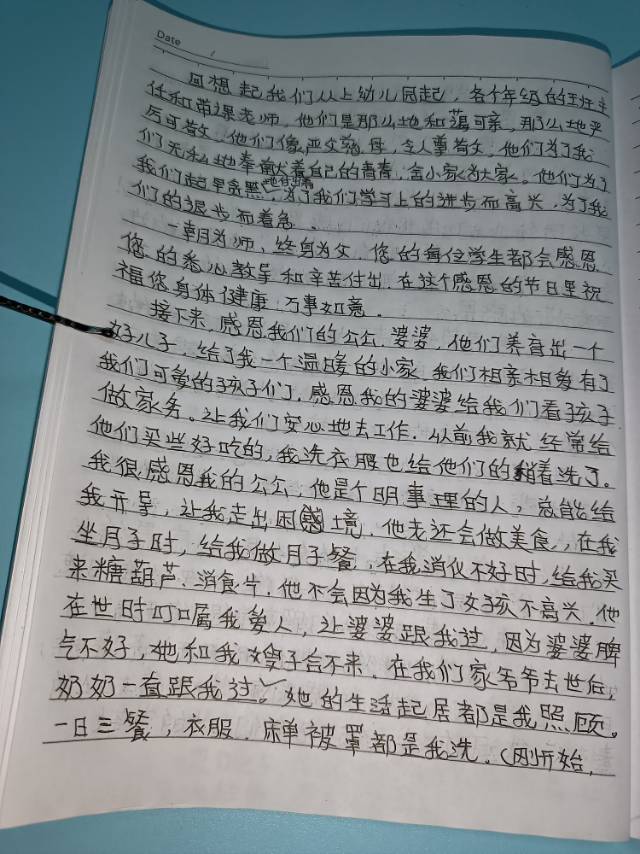 Date
回想起我们从上幼儿园起，各个年级的班主
任和带课老师，他们是那么地和蔼可亲，那么地严
厉可敬，他们像严父慈母，令人尊敬，他们为了我
们无私地奉献着自己的青春，舍小家为大家。他们为了
我们起早贪黑，为了我们学习上的进步而高兴，为了我
们的退步而着急。
一朝为师，终身为父，您的每位学生都会感恩
您的悉心教导和辛苦付出，在这个感恩的节日里祝
福您身体健康，万事如意。
接下来，感恩我们的公公，婆婆，他们养育出一个
好儿子，给了我一个温暖的小家，我们相亲相爱有了
我们可爱的孩子们，感恩我的婆婆给我们看孩子
做家务。让我们安心地去工作，从前我就经常给
他们买些好吃的，我洗衣服也给他们的捎着洗了。
我很感恩我的公公，他是个明事理的人，总能给
我开导，让我走出困惑境，他老还会做美食，在我
坐月子时，给我做月子餐，在我消化不好时，给我买
来糖葫芦，消食片，他不会因为我生了女孩不高兴，他
在世时叮嘱我爱人，让婆婆跟我过，因为婆婆脾
气不好，她和我嫂子合不来，在我们家爷爷去世后，
奶奶一直跟我过。她的生活起居都是我照顾。
一日三餐，衣服，床单被罩都是我洗，（刚开始，